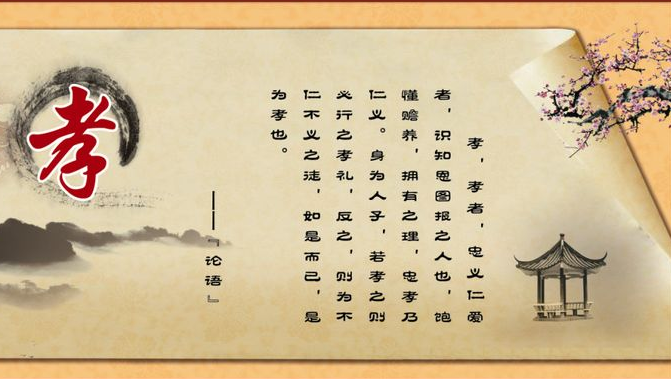 孝，孝者，忠义仁爱
者，识知恩图报之人也，饱
懂赡养，拥有之理，忠孝乃
仁义。身为人子，若孝之则
必行之孝礼，反之，则为不
仁不义之徒，如是而已，是
为孝也。
——『论语』
孝